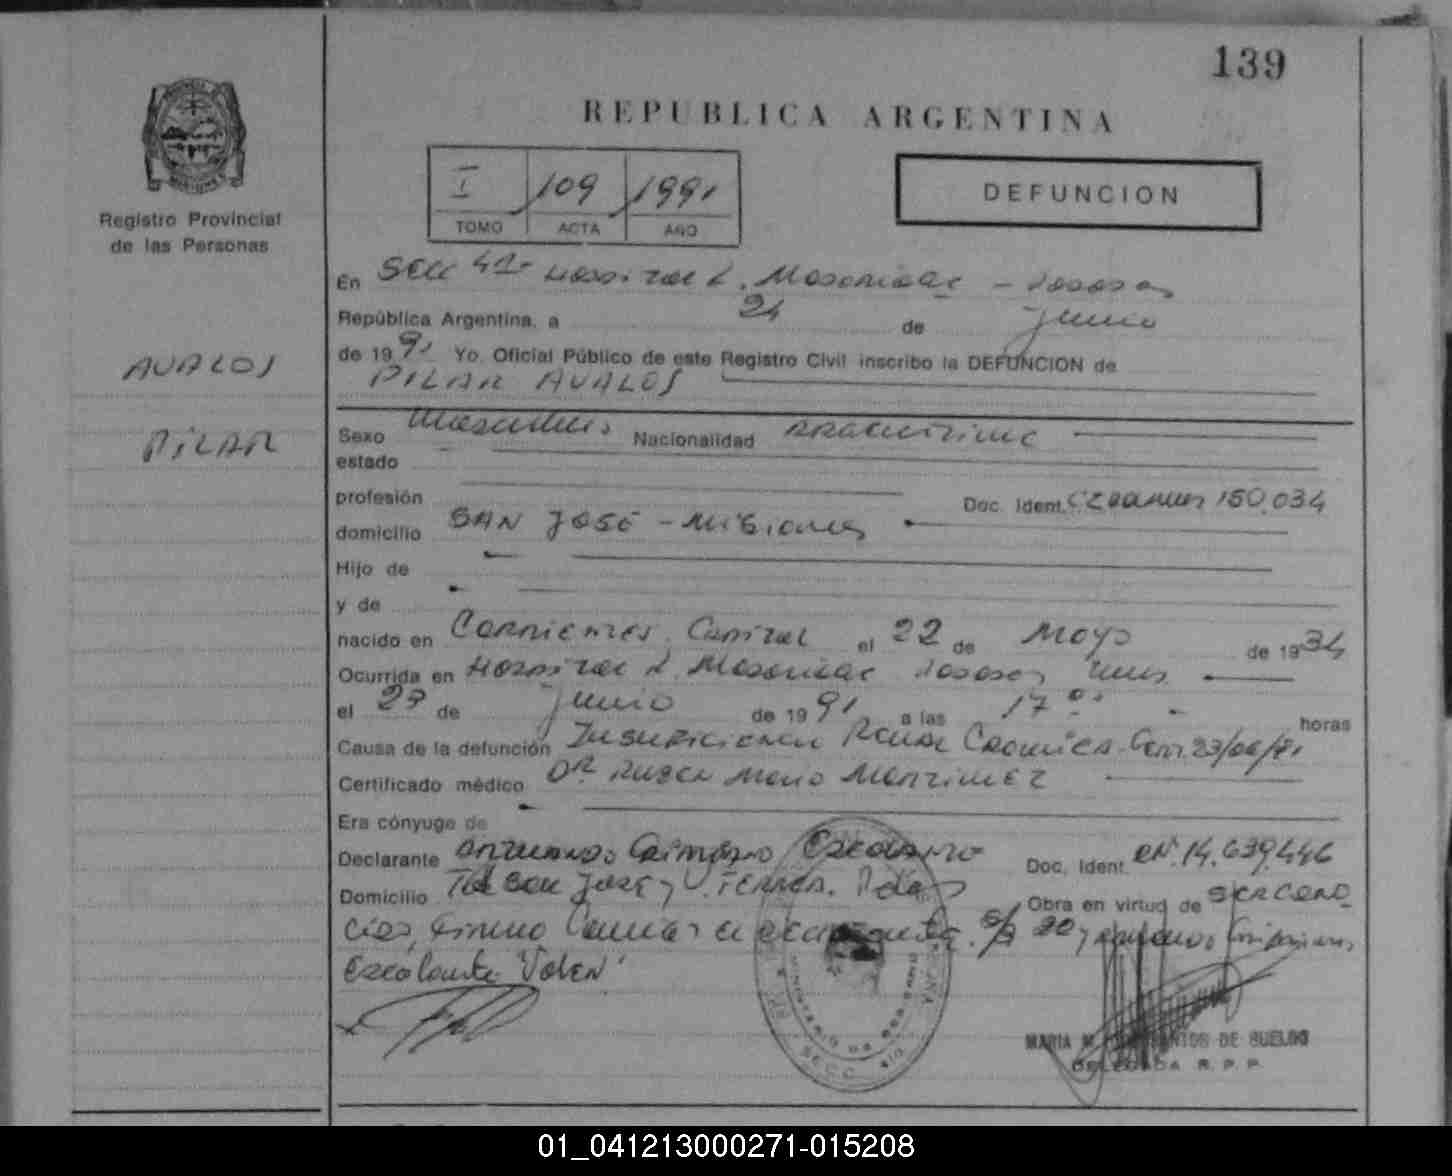 139
REPUBLICA ARGENTINA
I 109 1991
TOMO ACTA AÑO
DEFUNCION
Registro Provincial
de las Personas
AVALOS
PILAR
En Hospital R. Madariaga - Posadas
República Argentina, a 24 de Junio
de 1991 Yo, Oficial Público de este Registro Civil inscribo la DEFUNCION de
PILAR AVALOS
Sexo Masculino Nacionalidad ARGENTINO
estado
profesión Doc. Ident. 150.034
domicilio SAN JOSÉ - Misiones
Hijo de
y de
nacido en Corrientes Capital el 22 de Mayo de 1934
Ocurrida en Hospital R. Madariaga Posadas Mnes.
el 23 de Junio de 1991 a las 17 horas
Causa de la defunción Insuficiencia Renal Cronica. Cert. 23/06/91
Certificado médico Dr. Ruben Mario Martinez
Era cónyuge de
Declarante Doc. Ident. 14.639.446
Domicilio San José, Obra en virtud de ser cono
Escalante "Valen"
DELEGADA R. P. P.
01_041213000271-015208